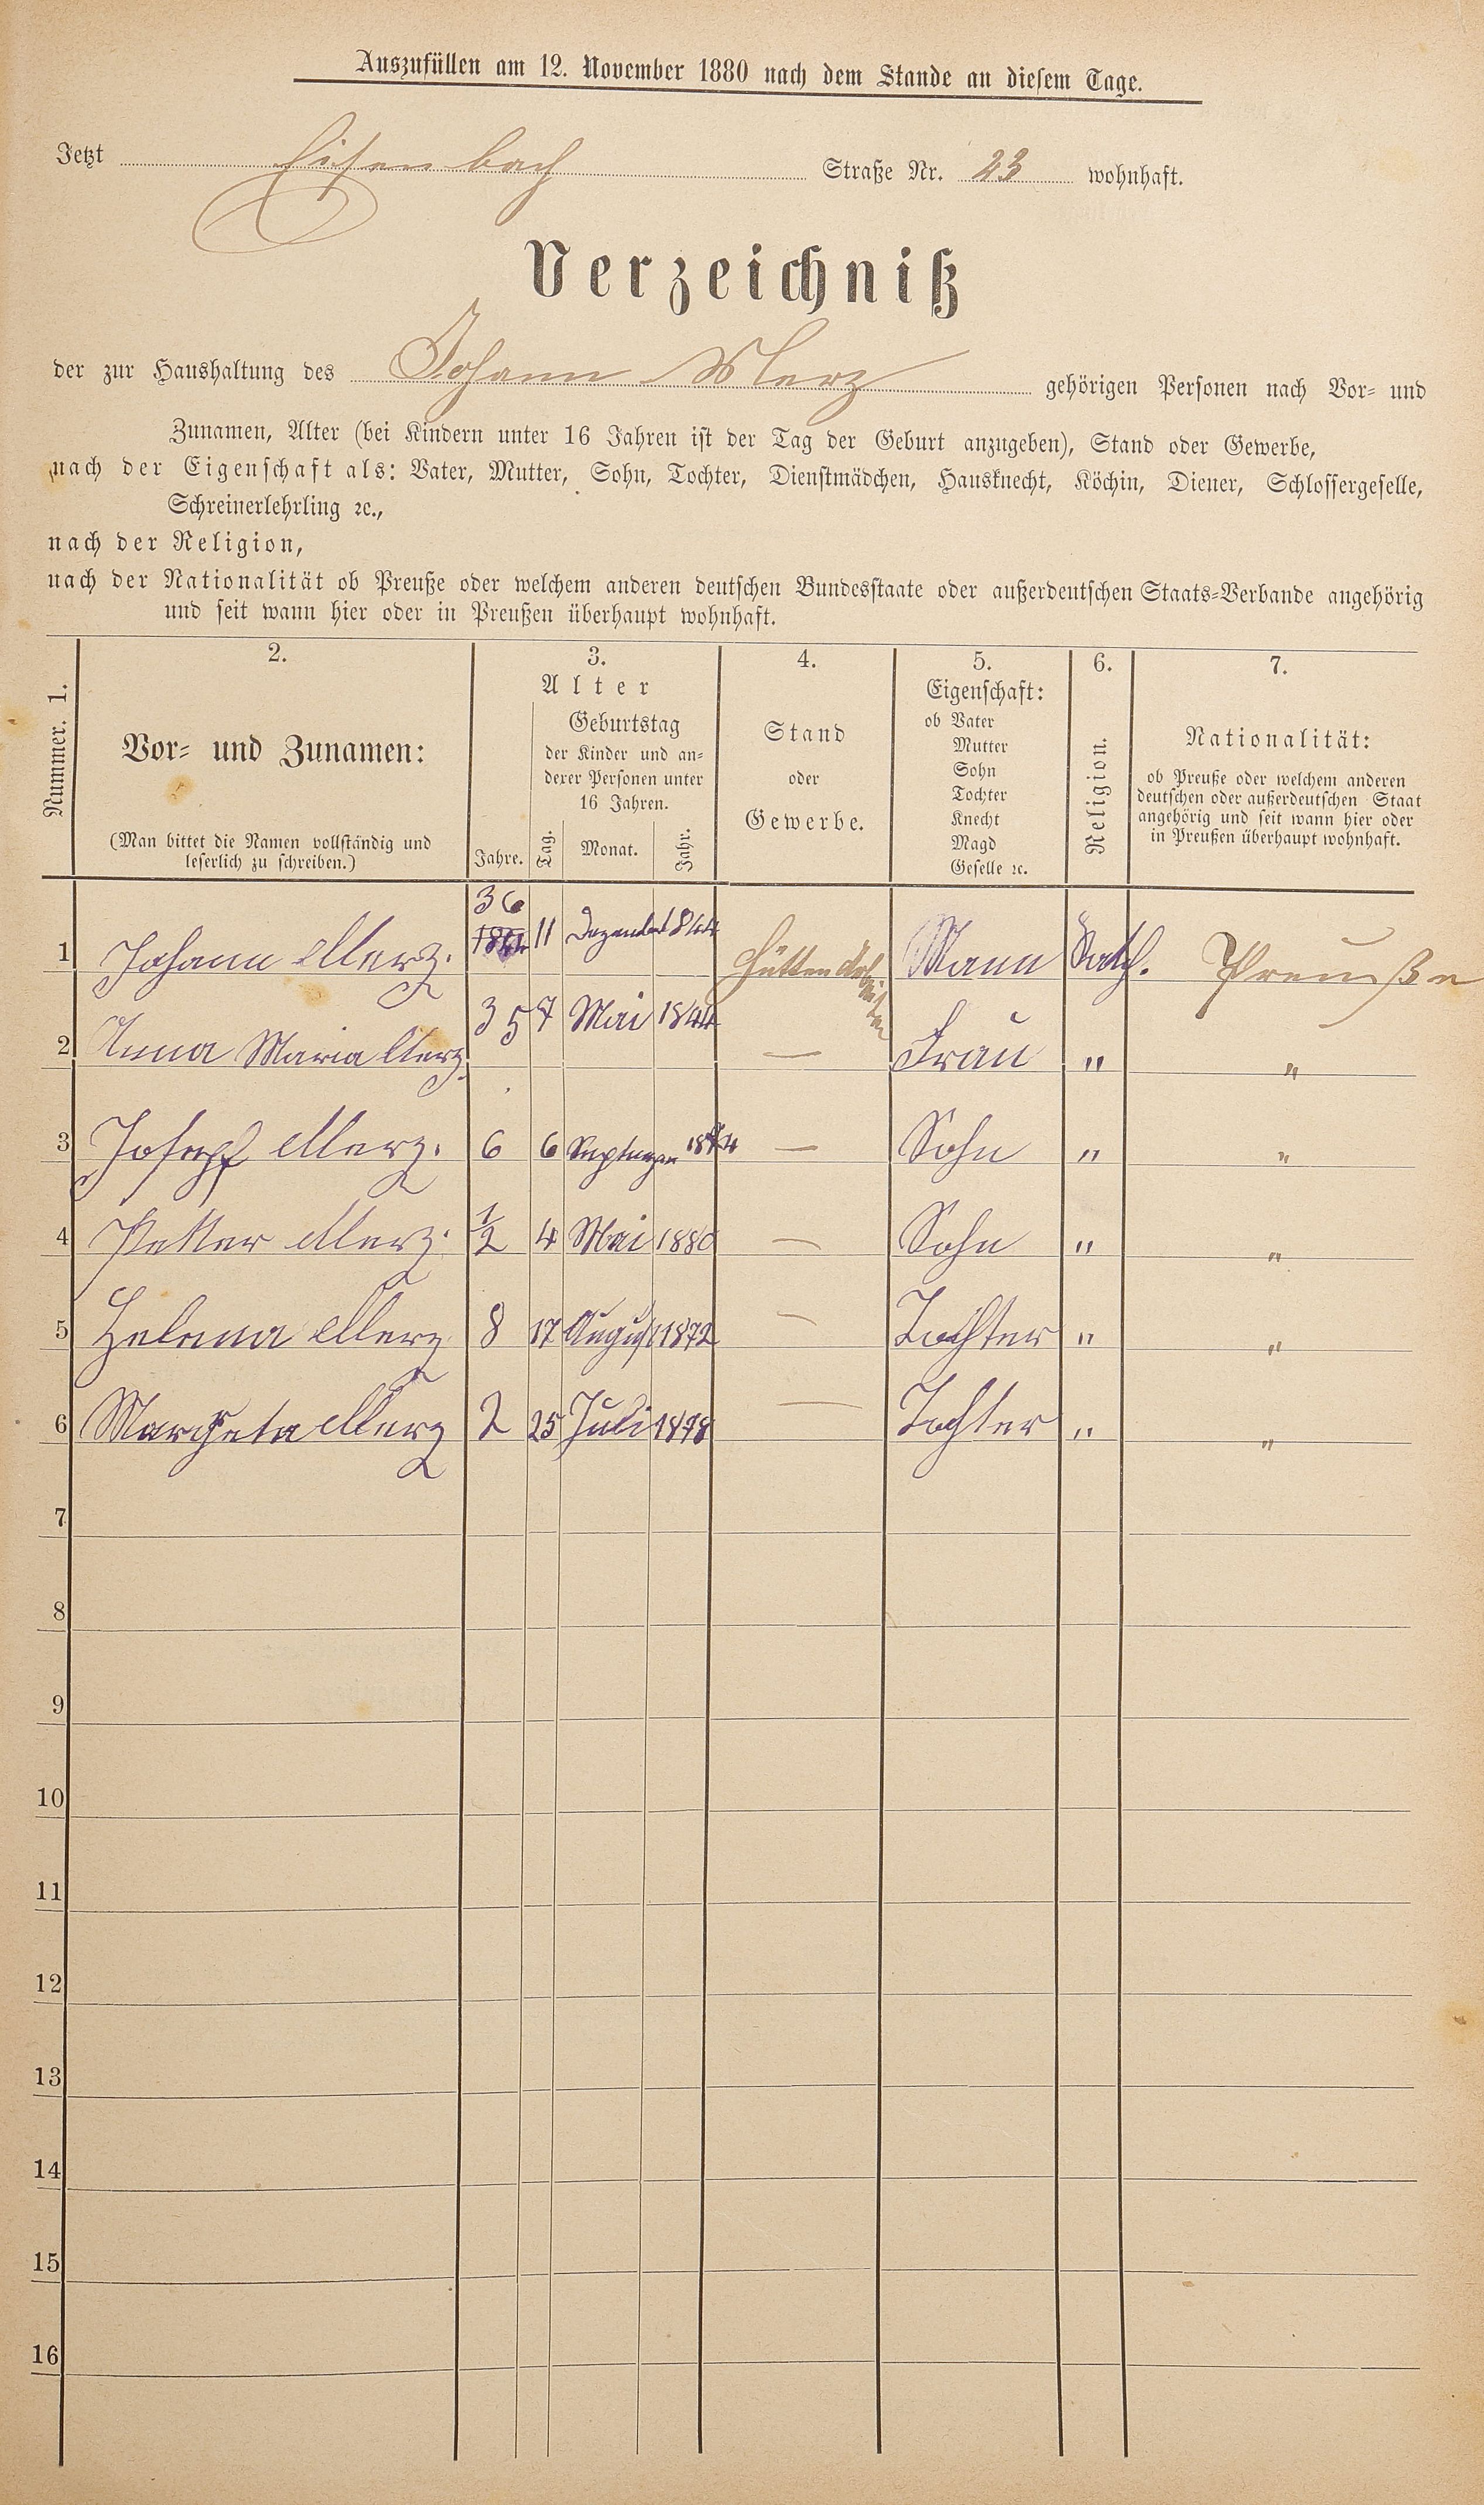 Auszufüllen am 12. November 1880 nach dem Stande an diesem Tage.
Jetzt Eisenbach Straße Nr. 23 wohnhaft.
Verzeichniß
der zur Haushaltung des Johann Merz gehörigen Personen nach Vor- und
Zunamen, Alter (bei Kindern unter 16 Jahren ist der Tag der Geburt anzugeben), Stand oder Gewerbe,
nach der Eigenschaft als: Vater, Mutter, Sohn, Tochter, Dienstmädchen, Hausknecht, Köchin, Diener, Schlossergeselle,
Schreinerlehrling ꝛc.,
nach der Religion,
nach der Nationalität ob Preuße oder welchem anderen deutschen Bundesstaate oder außerdeutschen Staats-Verbande angehörig
und seit wann hier oder in Preußen überhaupt wohnhaft.
Nummer. 1.
2.
Vor- und Zunamen:
(Man bittet die Namen vollständig und
leserlich zu schreiben.)
3.
Alter
Jahre.
Geburtstag
der Kinder und an-
derer Personen unter
16 Jahren.
Tag. Monat. Jahr.
4.
Stand
oder
Gewerbe.
5.
Eigenschaft:
ob Vater
Mutter
Sohn
Tochter
Knecht
Magd
Geselle ꝛc.
6.
Religion.
7.
Nationalität:
ob Preuße oder welchem anderen
deutschen oder außerdeutschen Staat
angehörig und seit wann hier oder
in Preußen überhaupt wohnhaft.
1 Johann Merz. 36 11 Dezember 1844 Hütten Mann Kath. Preuße
2 Anna Maria Merz. 35 7 Mai 1844 — Frau " "
3 Josepf Merz. 6 6 1874 — Sohn " "
4 Petter Merz. 1/2 4 Mai 1880 — Sohn " "
5 Helena Merz 8 17 August 1872 — Tochter " "
6 Margreta Merz 2 25 Juli 1878 — Tochter " "
7
8
9
10
11
12
13
14
15
16